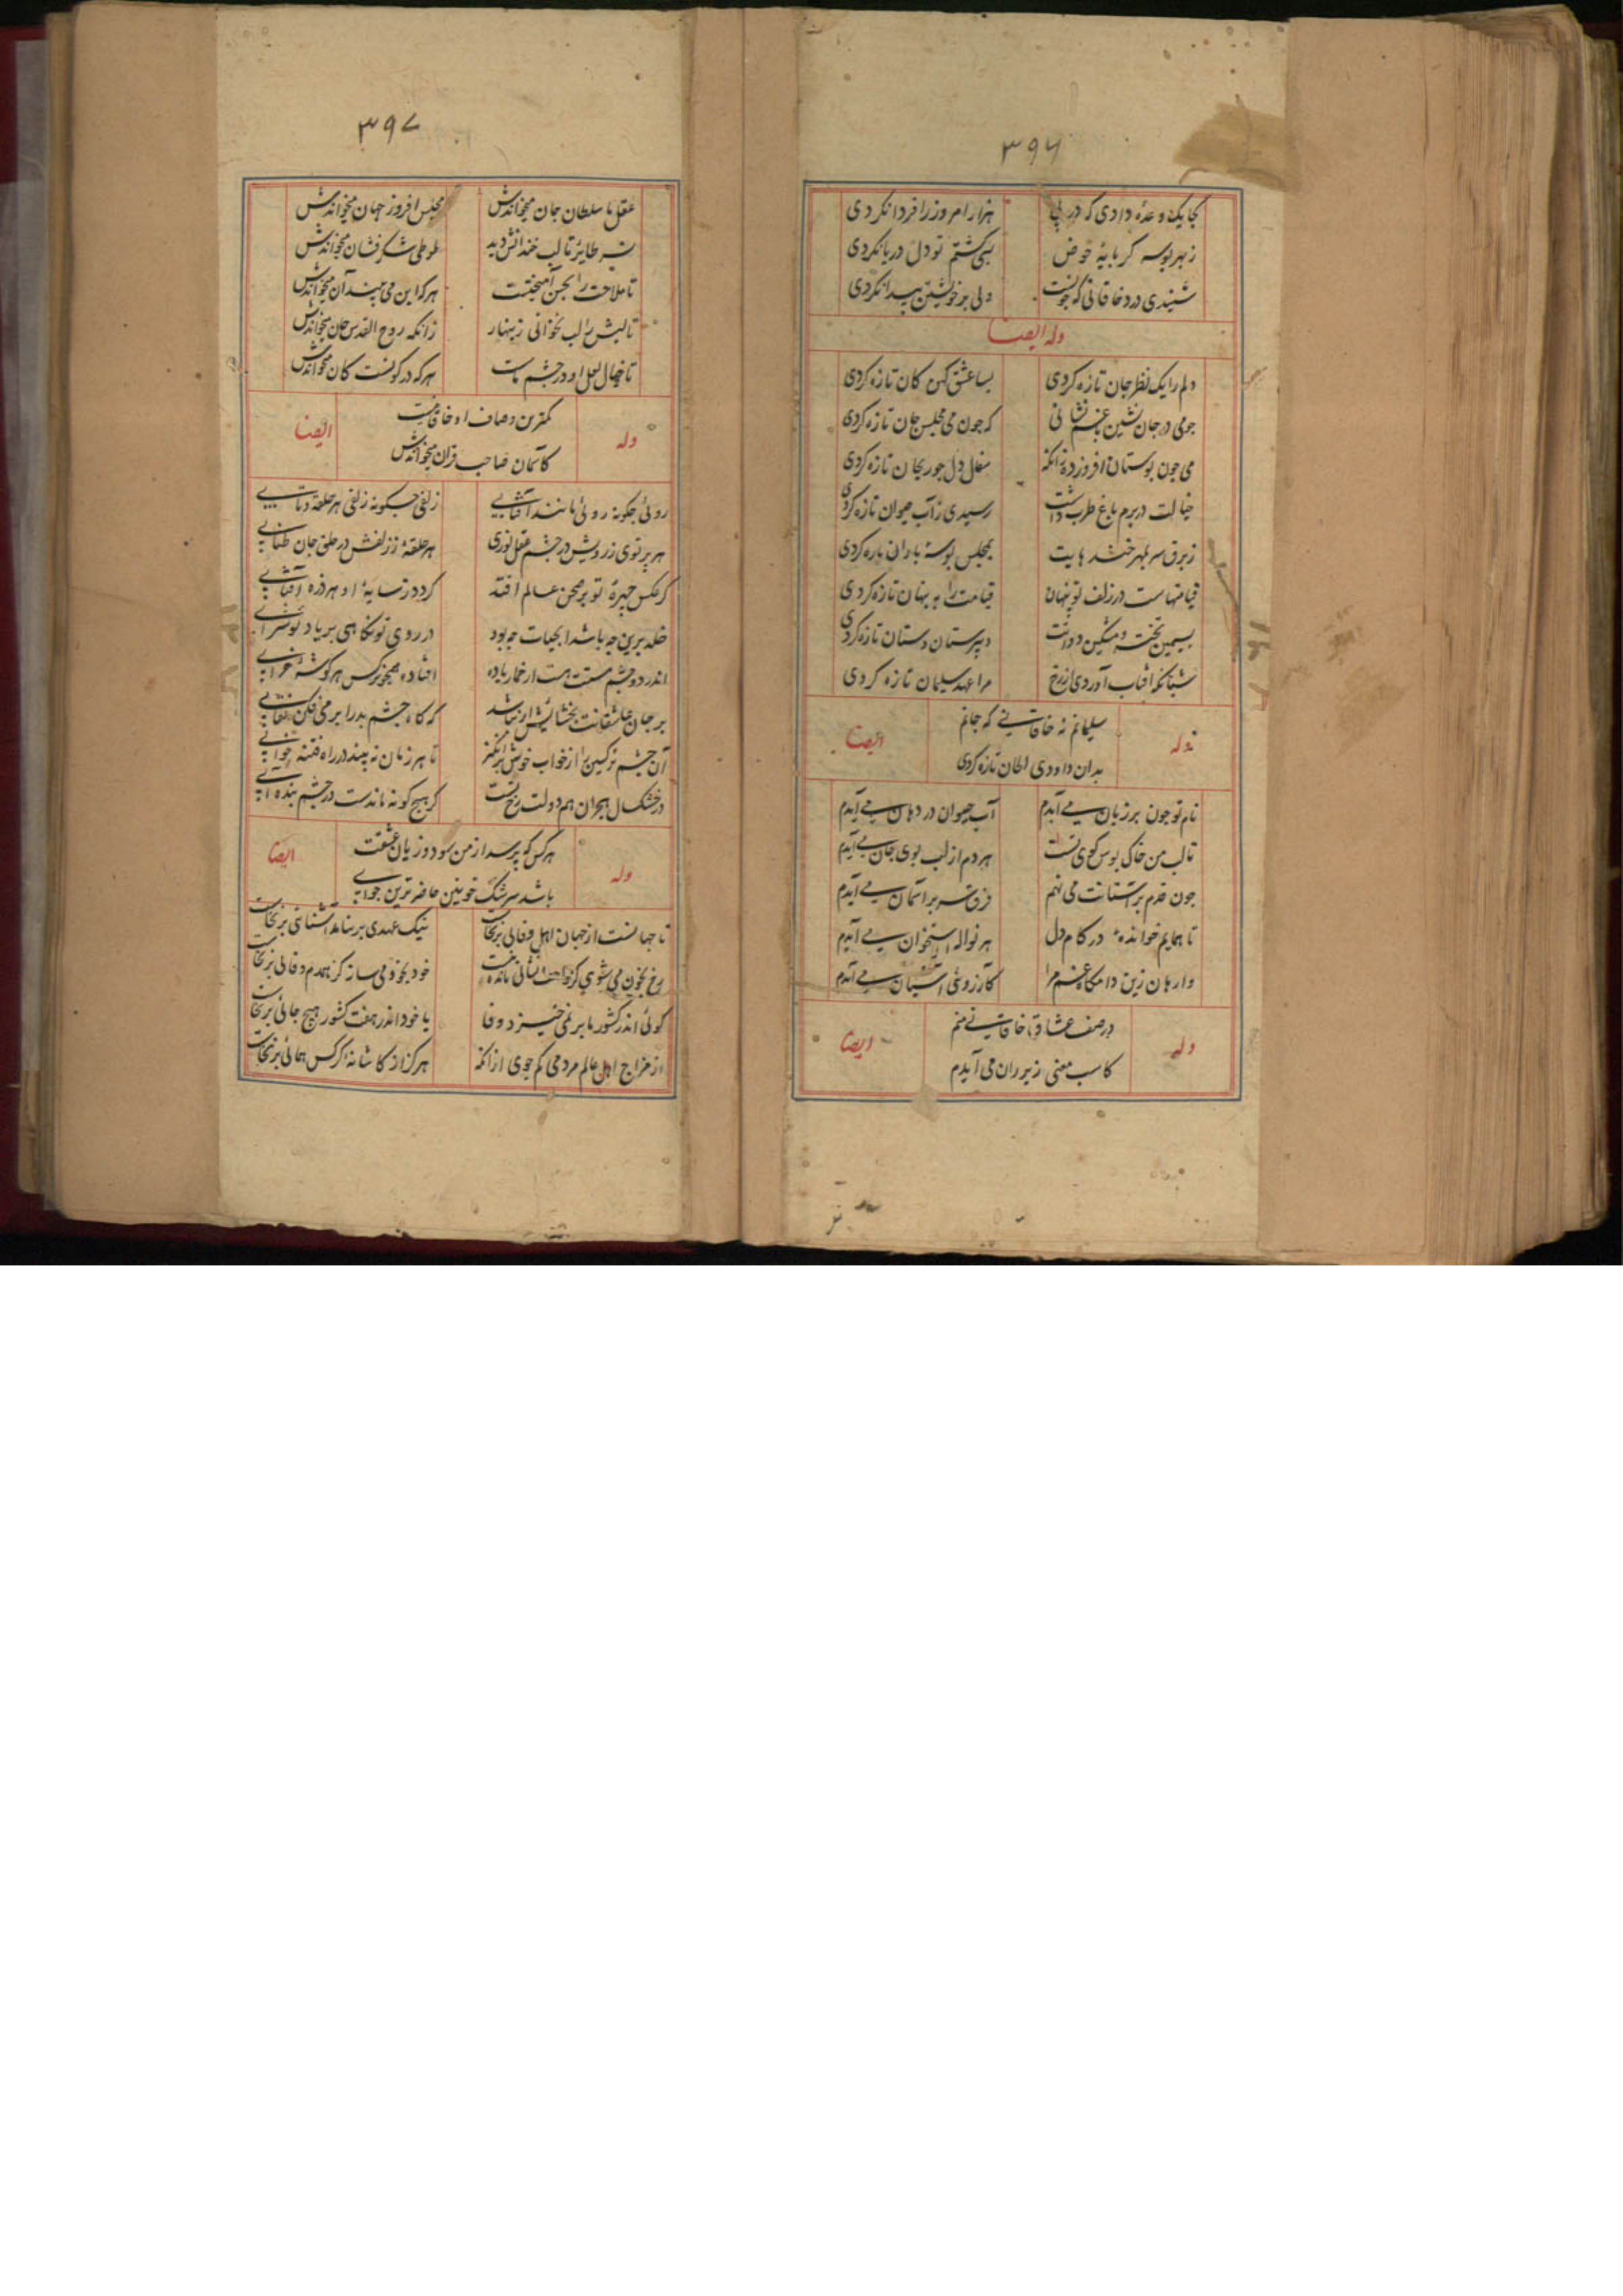 ۳۹۶
کجا یک وعده دادی که در پی هزار امروز را فردا نکردی
زبهر بوسه کر بایه حوض بسی کشتم تو دل دریا نکردی
شنیدی درد خاقانی که جونست ولی بر خویشتن پیدا نکردی
وله ایضا
دلم را یک نظر جان تازه کردی بسا عشق کهن کان تازه کردی
جو می در جان نشین تا غم نشانی که جون می مجلس جان تازه کردی
می جون بوستان افروز ده زانکه سفال دل جو ریحان تازه کردی
خیالت در برم باغ طرب داشت رسیدی زآب حیوان تازه کردی
زبرق سر بمهر خنده هایت بمجلس بوسه باران تازه کردی
قیامتهاست در زلف تو پنهان قیامت را به پنهان تازه کردی
بسیمین تخته و مشکین دواتت دبیرستان دستان تازه کردی
شبانکه افتاب آوردی از رخ مرا عهد سلیمان تازه کردی
سلیمانم نه خاقانی که جانم
وله ایضا
بدان داودی الحان تازه کردی
نام تو جون بر زبان می آیدم آب حیوان در دهان می آیدم
تا لب من خاک بوس کوی تست هر دم از لب بوی جان می آیدم
جون قدم بر آستانت می نهم فرق سر بر آسمان می آیدم
تا همایم خوانده در کام دل هر نواله استخوان می آیدم
وارهان زین دامکاه غم مرا کارزوی آشیان می آیدم
در صف عشاق تا خاقانی منم
وله ایضا
کاسب معنی زیر ران می آیدم
۳۹۷
عقل ما سلطان جان میخواندش مجلس افروز جهان میخواندش
نسر طایر تا لب خندانش دید طوطی شکر فشان میخواندش
تا ملاحت را بحسن آمیختست هر که این می بیند آن میخواندش
تا لبش را لب نخوانی زینهار زانکه روح القدس جان میخواندش
تا خیال لعل او در جشم ماست هر که در کونست کان میخواندش
کمترین وصاف او خاقانیست
وله ایضا
کاسمان صاحب قران میخواندش
روئی جکونه روئی مانند آفتابی زلفی جکونه زلفی هر حلقه و تابی
هر پرتوی ز رویش در جشم عقل نوری هر حلقه ز زلفش در حلق جان طنابی
کر عکس جهره تو بر صحن عالم افتد کردد ز سایه او هر ذره آفتابی
خلد برین جه باشد ابحیات جه بود در روی تو نکاهی بر یاد تو شرابی
اندر دو جشم مستت هست از خمار باده افتاده همجو نرکس هر کوشه خرابی
بر جان عاشقانت بخشایش ار نباشد که کاه جشم بد را بر می فکن نقابی
آن جشم نرکسین را از خواب خوش برانکیز تا هر زمان نه بیند در راه فتنه خوابی
در خشک سال هجران هم دولت رخ تست کر هیج کونه ماندست در جشم بنده آبی
هر کس که پرسد از من سود و زیان عشقت
وله ایضا
باشد سرشک خونین حاضر ترین جوابی
تا جهانست از جهان اهل وفائی برنخاست نیک عهدی بر نیامد آشنائی برنخاست
رخ بخون می شوی کز راحت نشانی مانده نیست خود بخود می ساز کز همدم وفائی برنخاست
کوئی اندر کشور ما بر نمی خیزد وفا یا خود اندر هفت کشور هیج جائی برنخاست
از مزاج اهل عالم مردمی کم جوی ازانکه هرکز از کاشانه کرکس همائی برنخاست